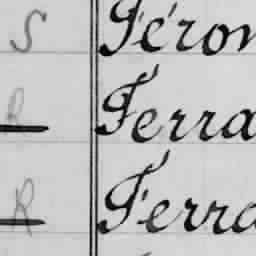 S Féron
R Ferra
R Ferra